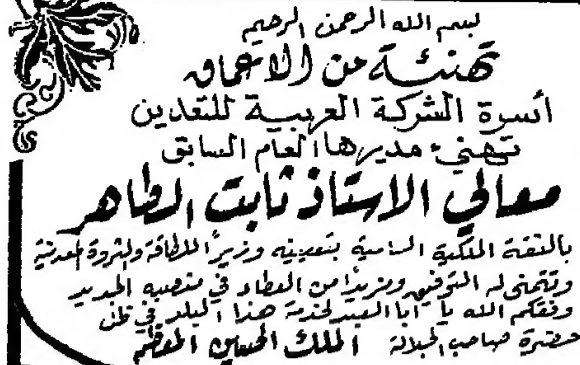 بسم الله الرحمن الرحيم
تهنئة من الاعماق
أسرة الشركة العربية للتعدين
تهنيء مديرها العام السابق
معالي الاستاذ ثابت الطاهر
بالثقة الملكية السامية بتعيينه وزيراً للطاقة والثروة المعدنية
وتتمنى له التوفيق ومزيداً من العطاء في منصبه الجديد
وفقكم الله يا أبا العبد لخدمة هذا البلد في ظل
حضرة صاحب الجلالة الملك الحسين المعظم